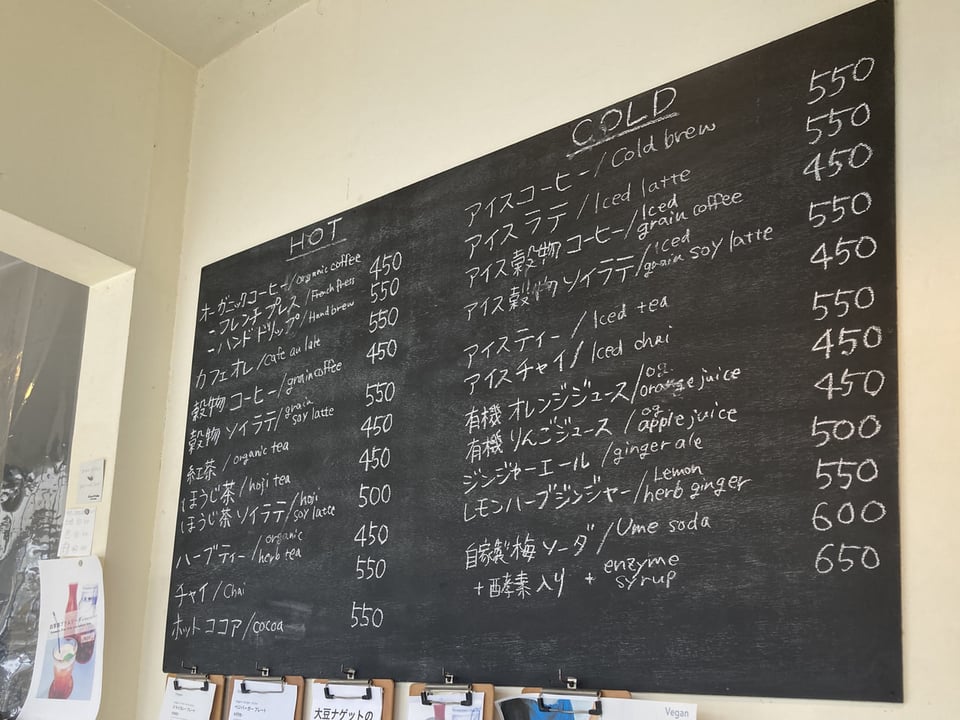 HOT
オーガニックコーヒー/organic coffee 450
-フレンチプレス/French Press 550
-ハンドドリップ/Hand brew
カフェオレ/Cafe au lait 550
穀物コーヒー/grain coffee 450
穀物ソイラテ/grain soy latte 550
紅茶/organic tea 450
ほうじ茶/hoji tea 450
ほうじ茶ソイラテ/hoji soy latte 500
ハーブティー/organic herb tea 450
チャイ/Chai 550
ホットココア/cocoa 550
COLD
アイスコーヒー/Cold brew 550
アイスラテ/Iced latte 550
アイス穀物コーヒー/Iced grain coffee 450
アイス穀物ソイラテ/iced grain soy latte 550
アイスティー/Iced tea 450
アイスチャイ/Iced chai 550
有機オレンジジュース/og. orange juice 450
有機りんごジュース/og apple juice 450
ジンジャーエール/ginger ale 500
レモンハーブジンジャー/Lemon herb ginger 550
自家製梅ソーダ/Ume soda 600
+酵素入り + enzyme syrup 650
大豆ナゲットの
Vegan